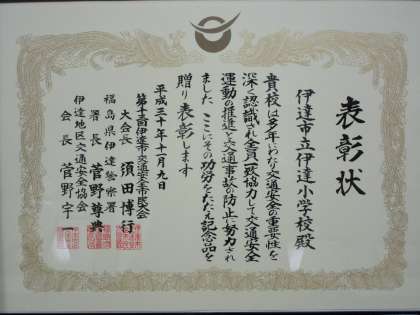 表彰状
伊達市立伊達小学校殿
貴校は多年にわたり交通安全の重要性を
深く認識され全員一致協力して交通安全
運動の推進と交通事故の防止に努力され
ました ここにその功労をたたえ記念品を
贈り表彰します
平成三十年十一月九日
第十三回伊達市交通安全市民大会
大会長 須田博行
福島県伊達警察署
署長 菅野尊典
伊達地区交通安全協会
会長 菅野宇一